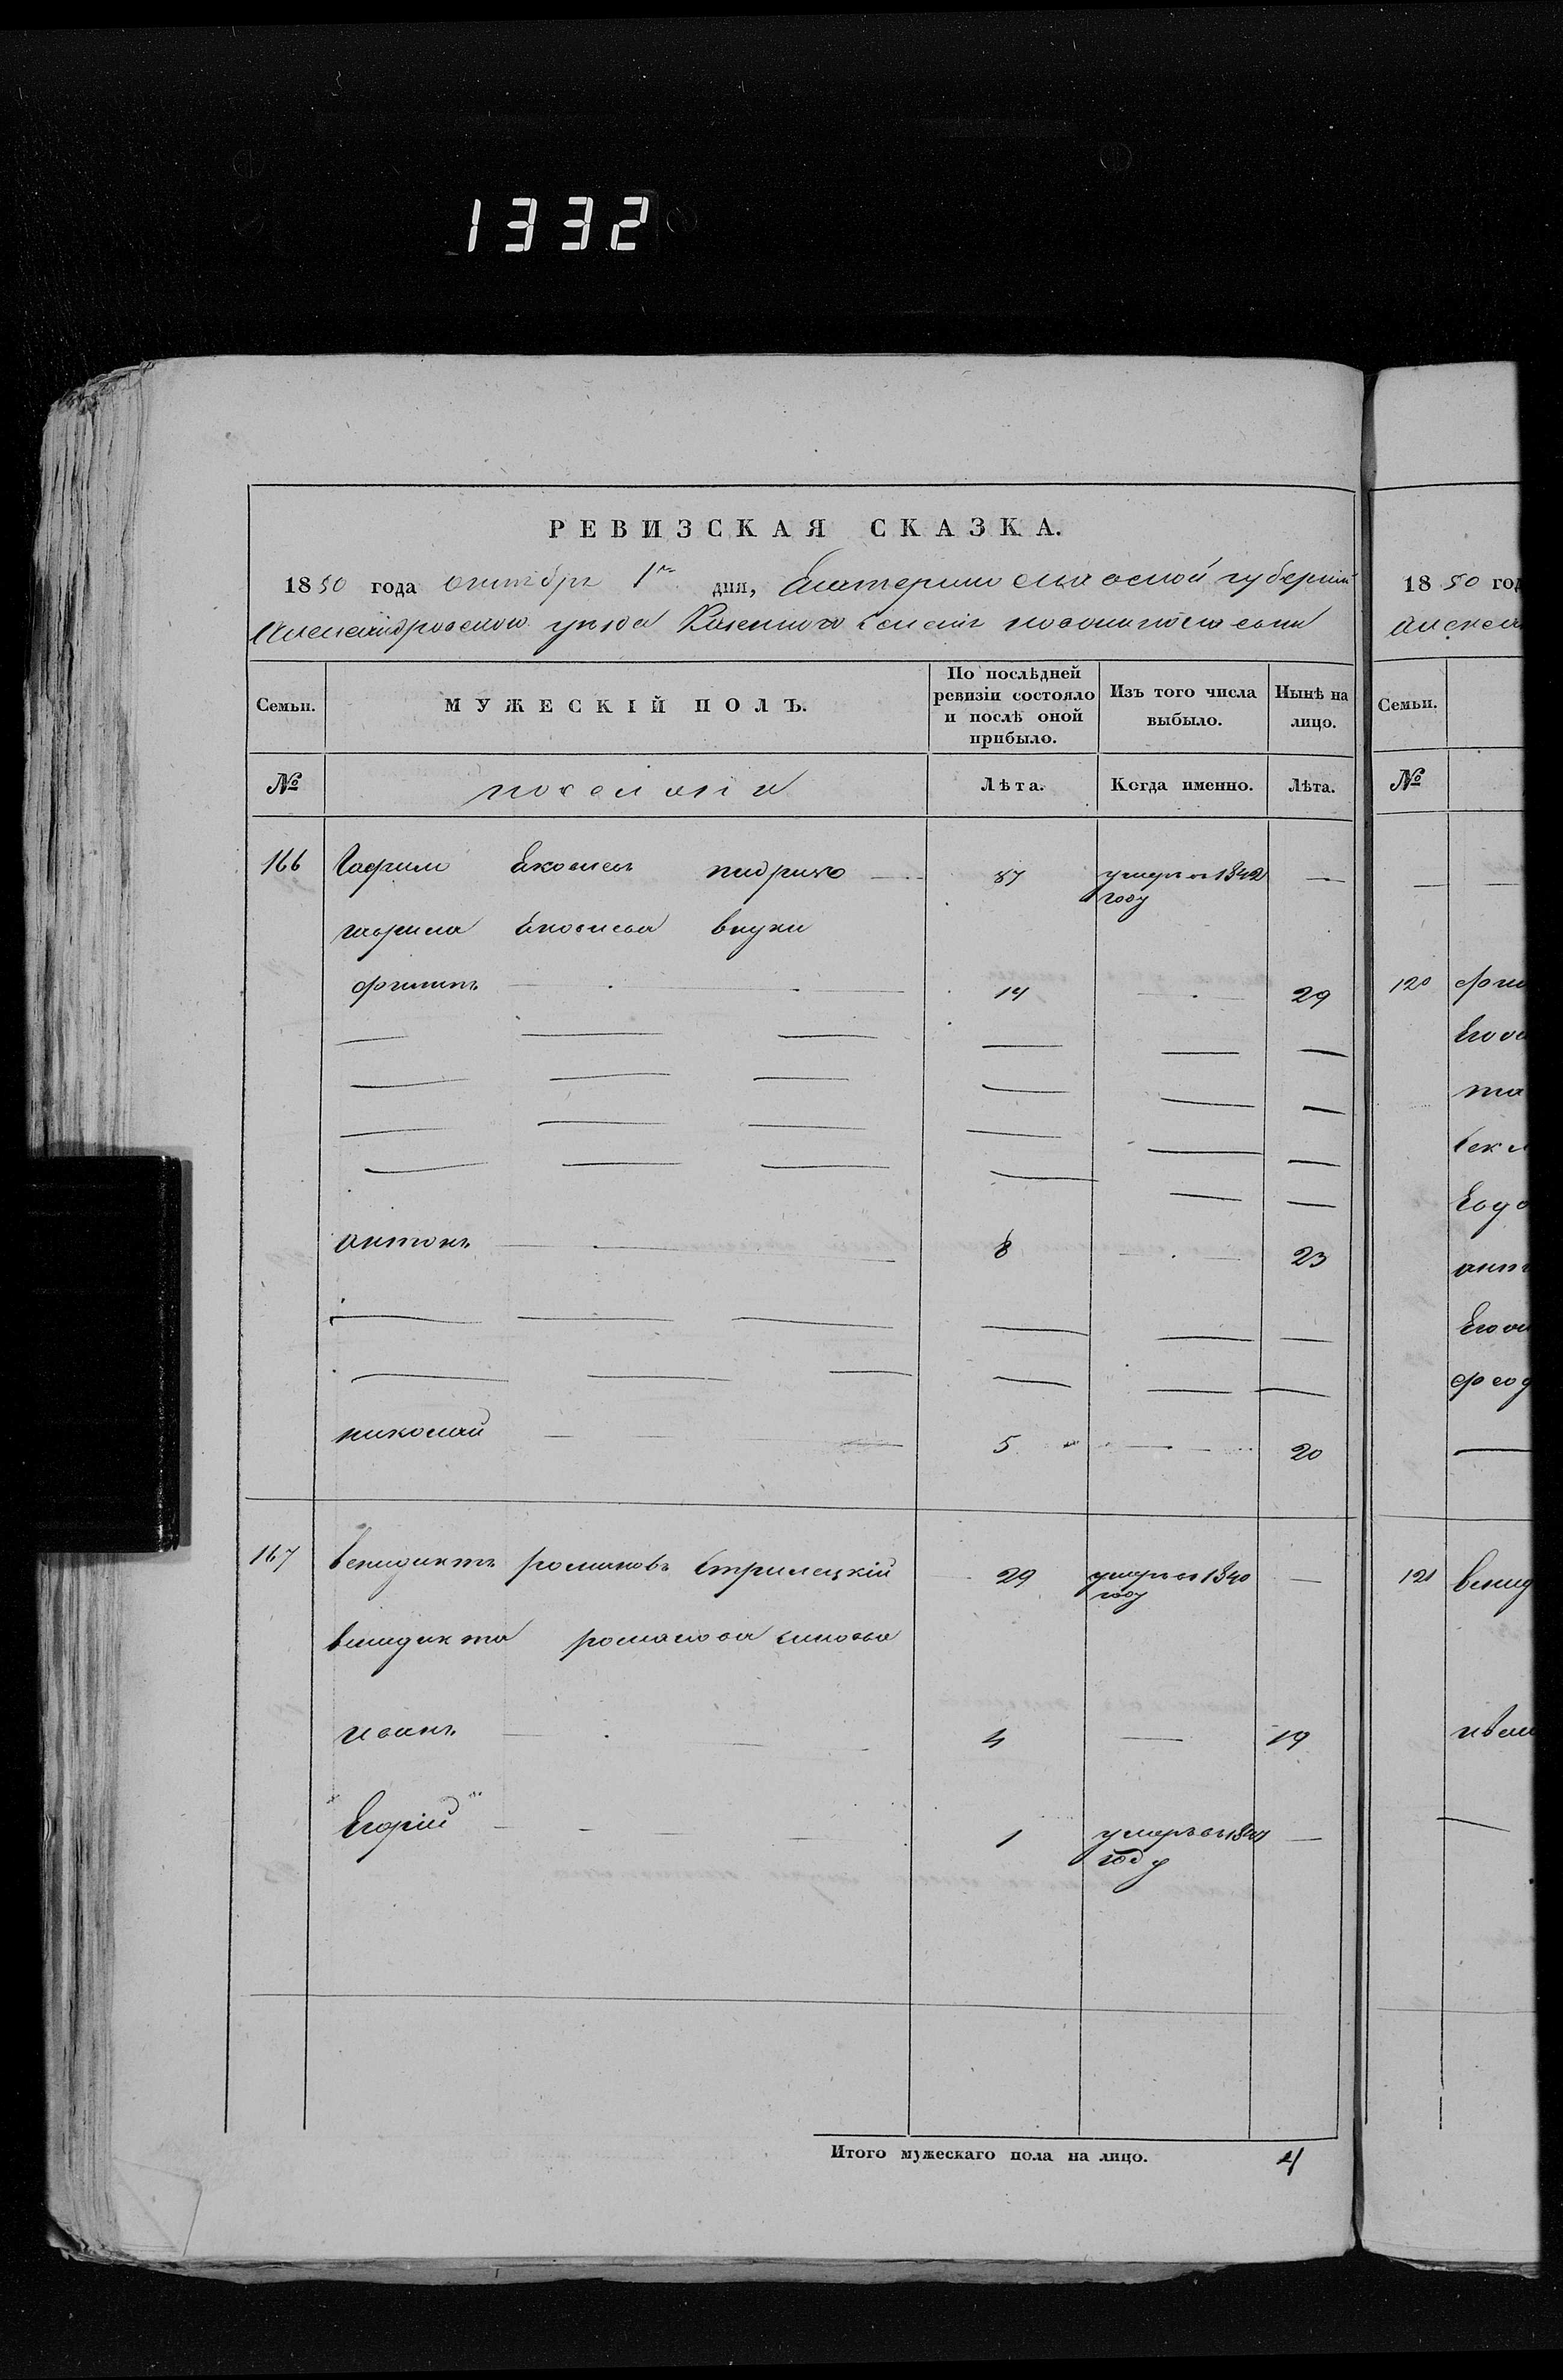 1332
РЕВИЗСКАЯ СКАЗКА.
1850 года октября 1го дня, Екатеринославской губерніи
Александровского уезда Казенного селенія
Семьи.
МУЖЕСКІЙ ПОЛЪ.
По послѣдней ревизіи состояло и послѣ оной прибыло.
Изъ того числа выбыло.
Нынѣ на лицо.
№
поселяне
Лѣта.
Когда именно.
Лѣта.
166 Гаврило 87 умеръ въ 1842 году —
гаврила внуки
филипъ 14 — 29
антонъ 8 — 23
николай 5 — 20
167 венидиктъ романовъ Стрилецкій 29 умеръ въ 1840 году —
венидикта романова синовья
иванъ 4 — 19
Егорій 1 умеръ въ году —
Итого мужескаго пола на лицо. 4
1850 год
алекса
Семьи.
№
120 фил
Его
антo
Его
121 венид
иван